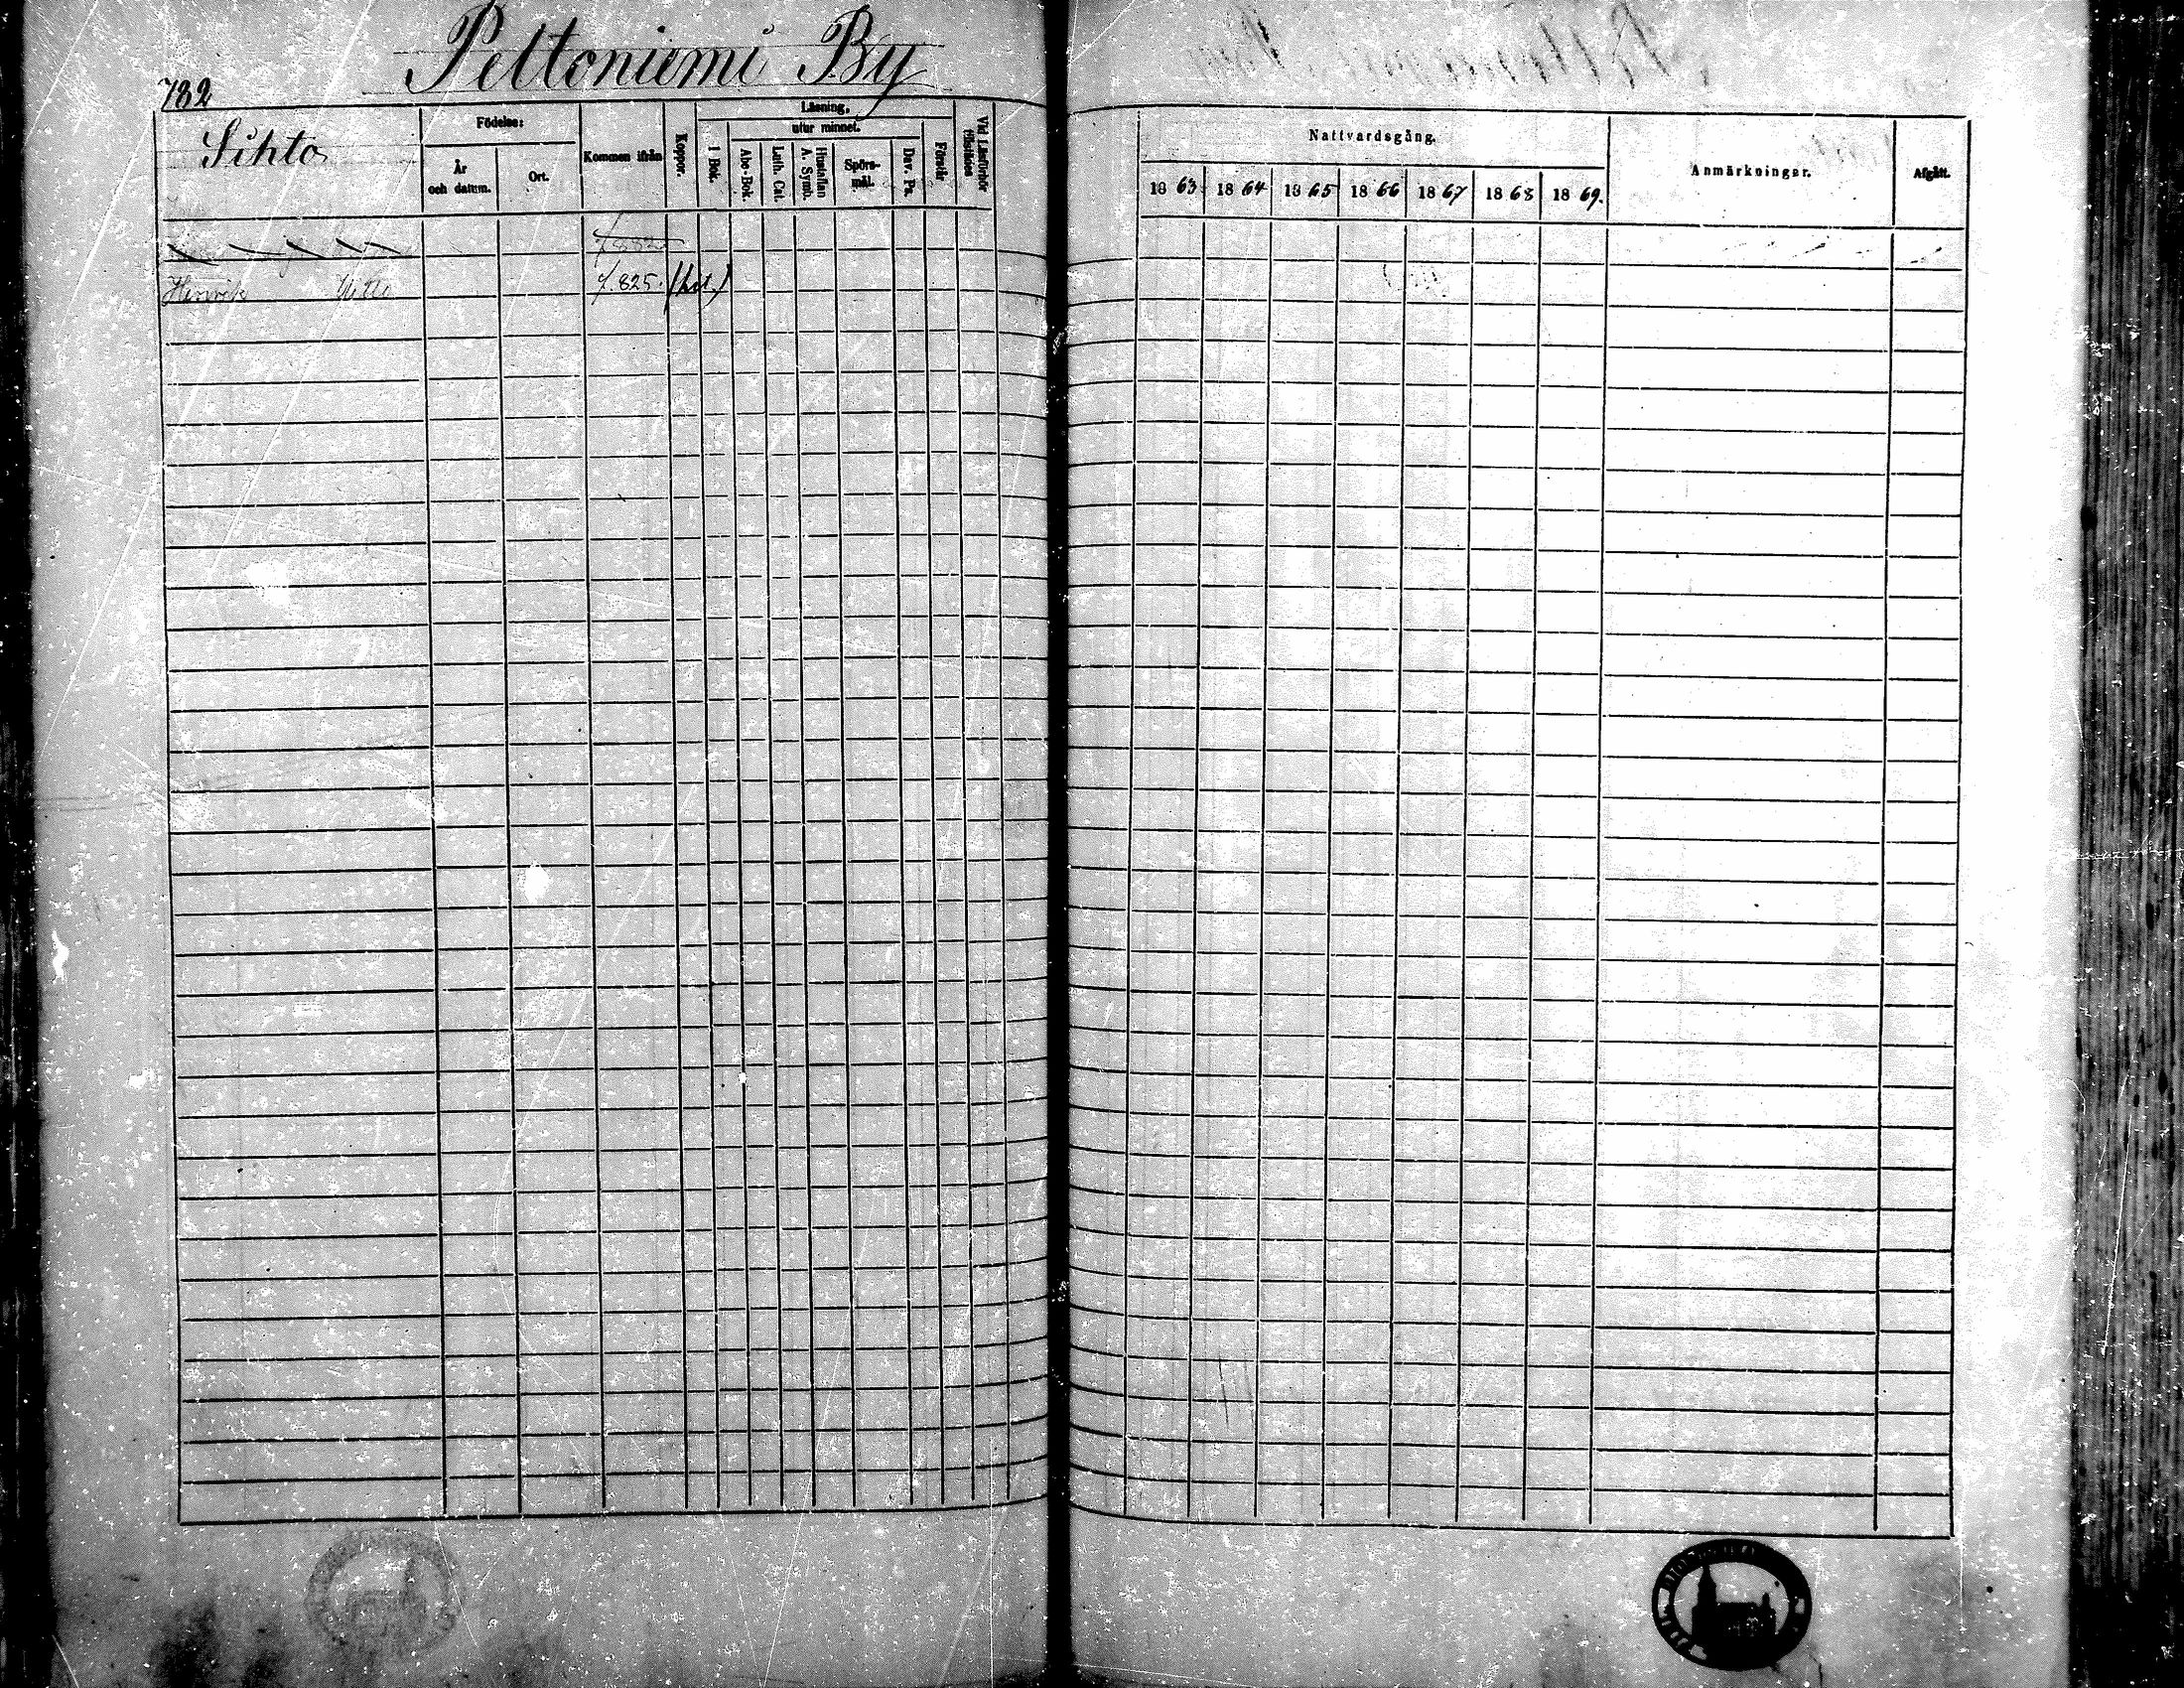 Peltoniemi By
782
Sihto
Födelse:
År och datum.
Ort.
Kommen ifrån
Koppor.
Läsning,
I Bok.
utur minnet.
Abc-Bok.
Luth. Cat.
Hustaflan A. Symb.
Spörs-mål.
Dav. Ps.
Förstår
Vid Läsförhör tillstädes
Nattvardsgång.
1863. 1864 1865 1866 1867 1868 1869.
Anmärkningar.
Afgått.
Henrik f. 825.